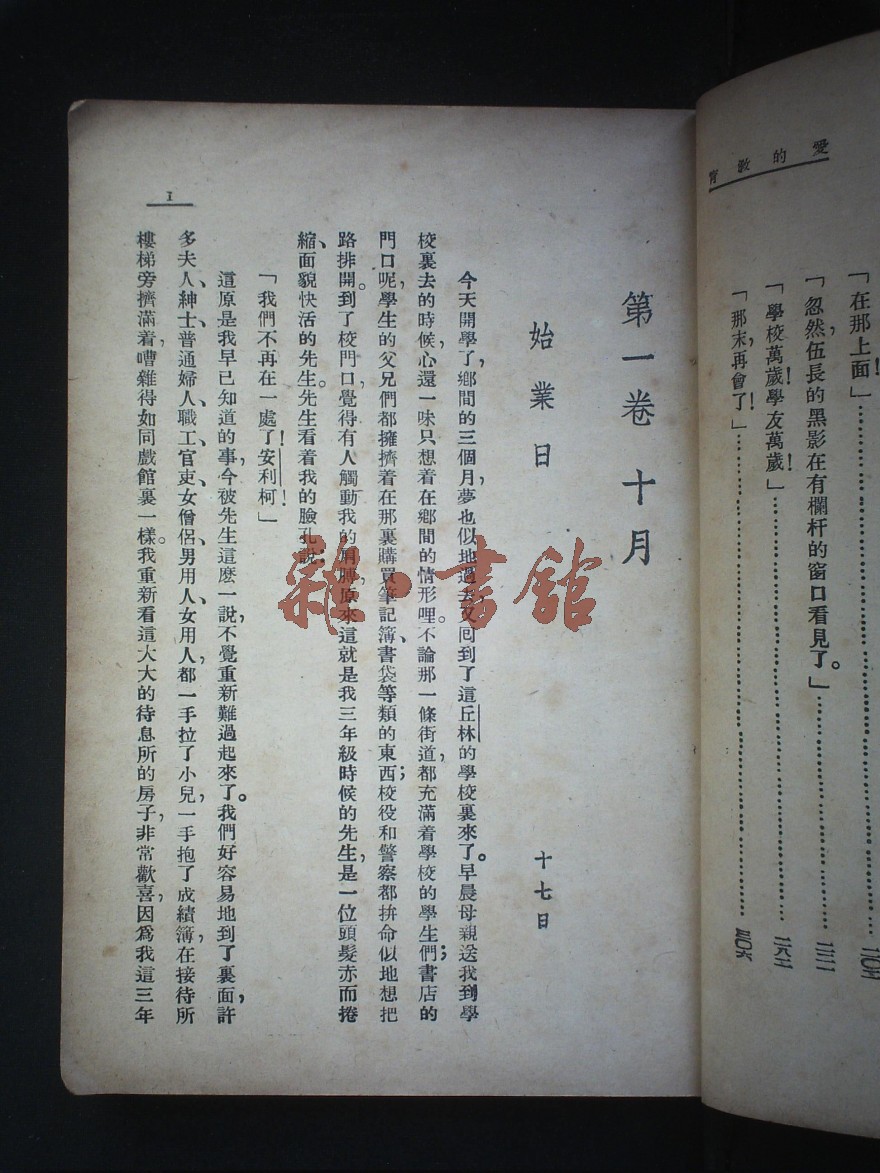 愛的教育
「在那上面！」
「忽然，伍長的黑影在有欄杆的窗口看見了。」
「學校萬歲！學友萬歲！」
「那末，再會了！」
第一卷 十月
始業日 十七日
今天開學了，鄉間的三個月，夢也似地過去，又回到了這丘林的學校裏來了。早晨母親送我到學
校裏去的時候，心還一味只想着在鄉間的情形哩。不論那一條街道，都充滿着學校的學生們；書店的
門口呢，學生的父兄們都擁擠着在那裏購買筆記簿、書袋等類的東西；校役和警察都拚命似地想把
路排開。到了校門口，覺得有人觸動我的肩膊，原來這就是我三年級時候的先生，是一位頭髮赤而捲
縮、面貌快活的先生。先生看着我的臉孔說：
「我們不再在一處了！安利柯！」
這原是我早已知道的事，今被先生這麽一說，不覺重新難過起來了。我們好容易地到了裏面，許
多夫人、紳士、普通婦人、職工、官吏、女僧侶、男用人、女用人，都一手拉了小兒，一手抱了成績簿，在接待所
樓梯旁擠滿着，嘈雜得如同戲館裏一樣。我重新看這大大的待息所的房子，非常歡喜，因爲我這三年
1
雜·書館